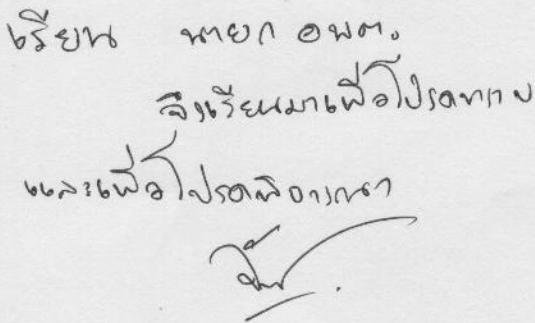 เรียน นายก อบต.
จึงเรียนมาเพื่อโปรดทราบ
และเพื่อโปรดพิจารณา